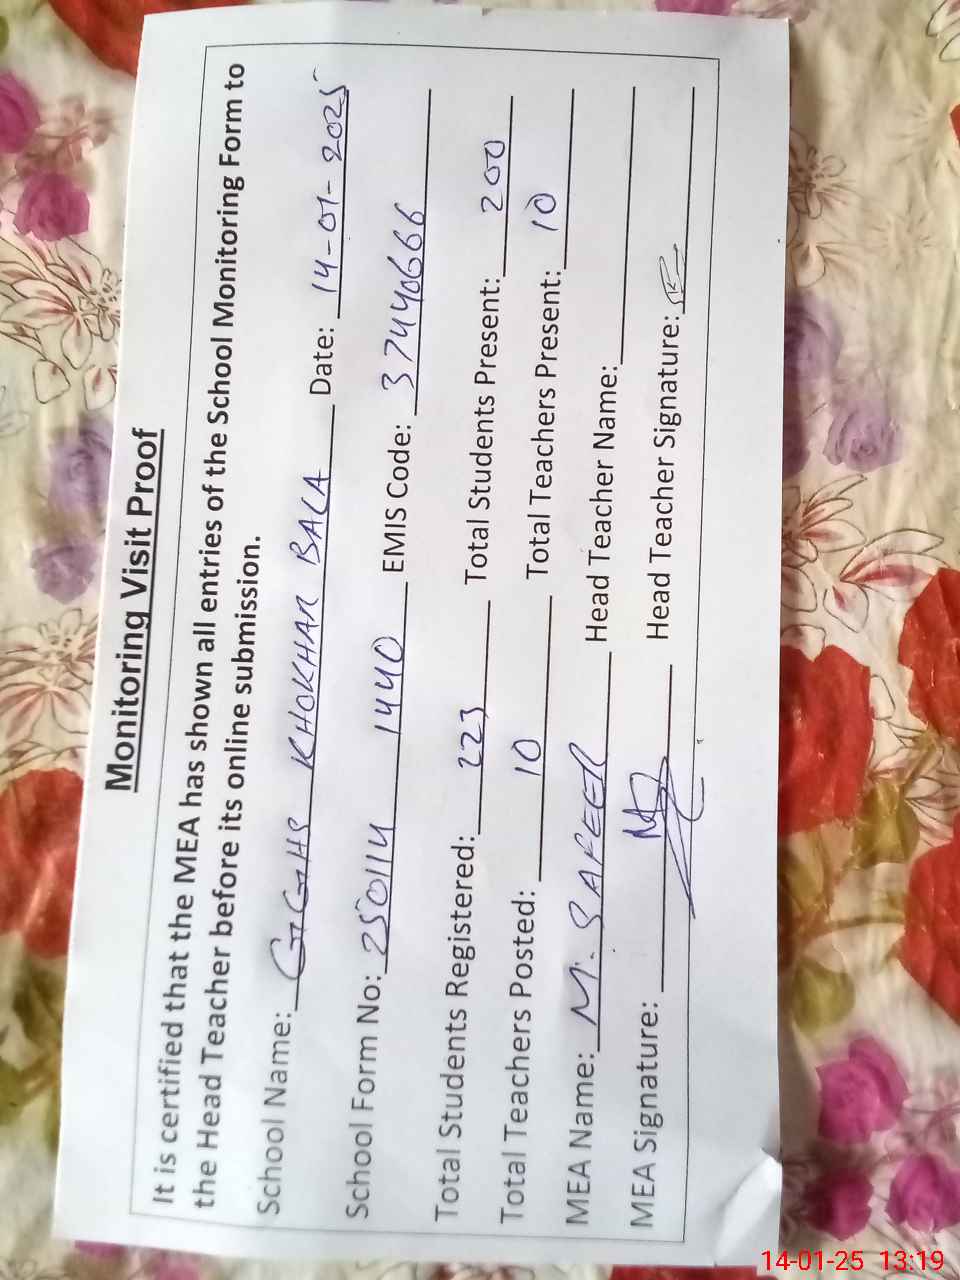 Monitoring Visit Proof
It is certified that the MEA has shown all entries of the School Monitoring Form to
the Head Teacher before its online submission.
School Name: GGHS KHOKHAR BALA Date: 14-01-2025
School Form No: 250114 1440 EMIS Code: 37440666
Total Students Registered: 223 Total Students Present: 200
Total Teachers Posted: 10 Total Teachers Present: 10
MEA Name: M. SAFEER Head Teacher Name:
MEA Signature: Head Teacher Signature:
14-01-25 13:19